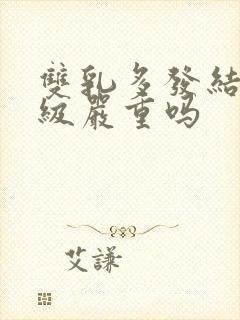 雙乳多發結
級嚴重吗
艾謙